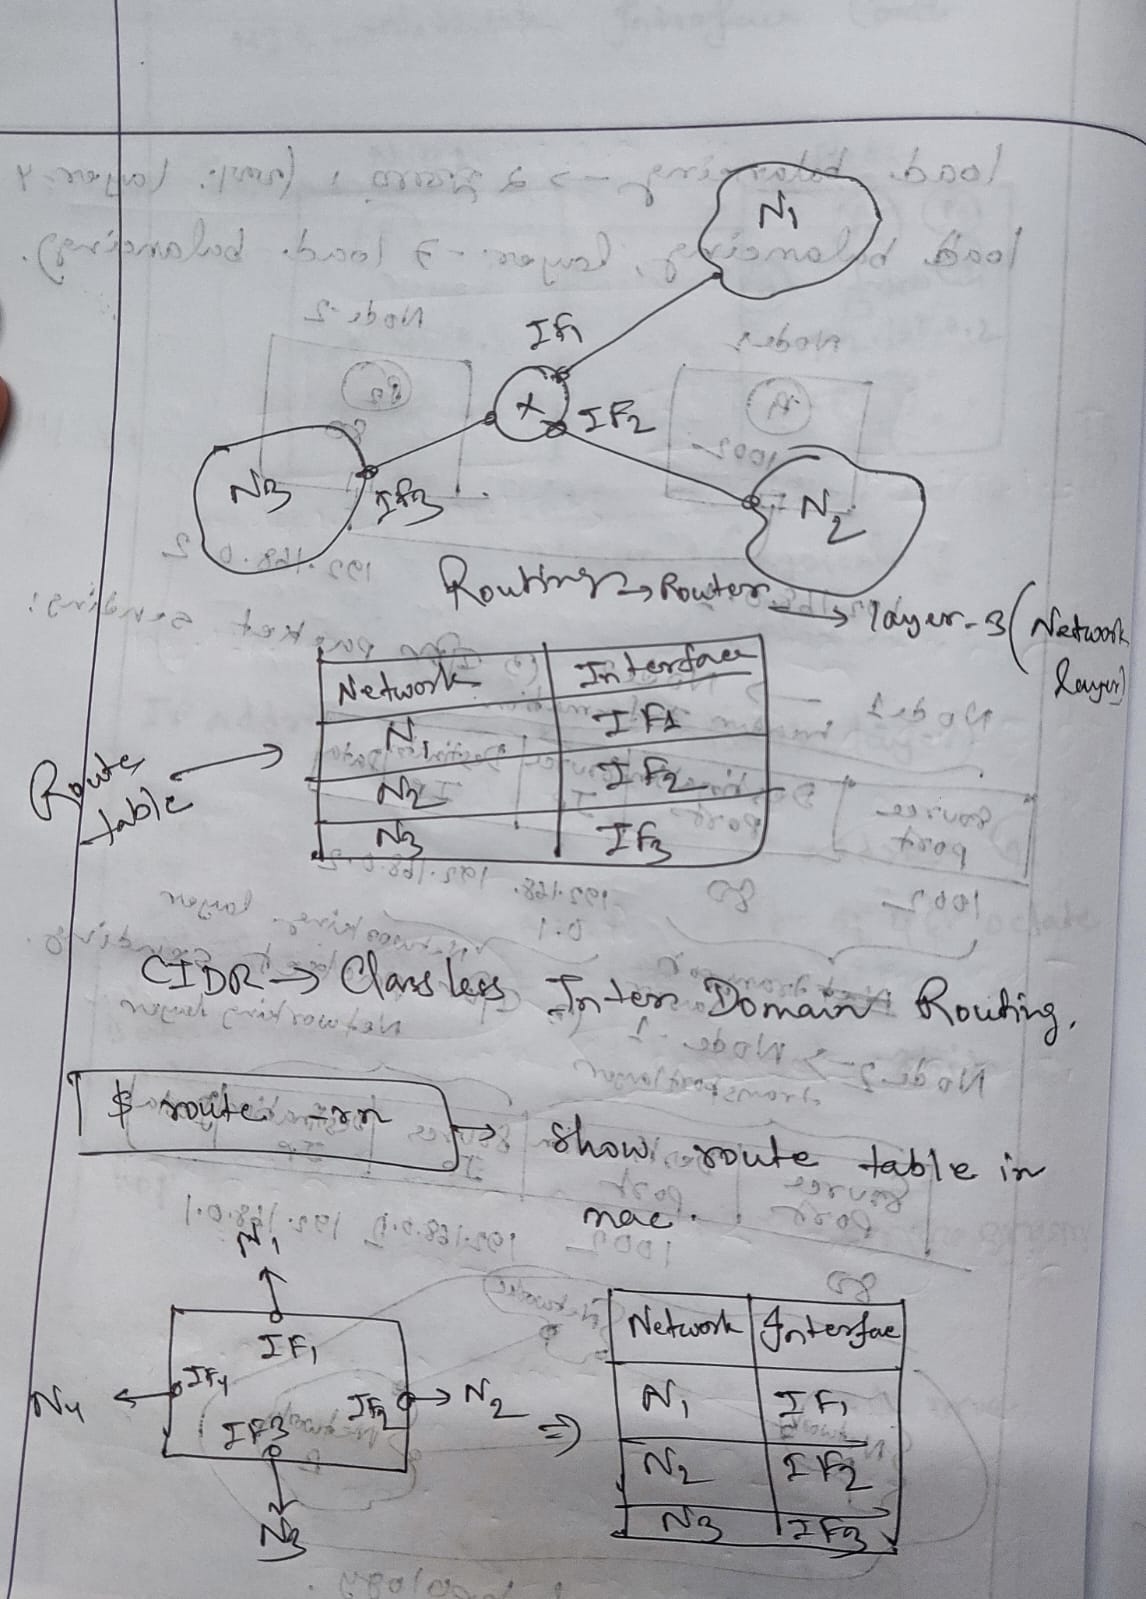 N1
IF1
IF2
N3
IF3
N2
Routing → Router → layer-3 (Network layer)
Network Interface
N1 IF1
Route table →
N2 IF2
N3 IF3
CIDR → Classless Inter Domain Routing.
$ route -rn → show route table in
mac.
N1
IF1
N4 ← IF4 IF2 → N2 ⇒
IF3
N3
Network Interfae
N1 IF1
N2 IF2
N3 IF3